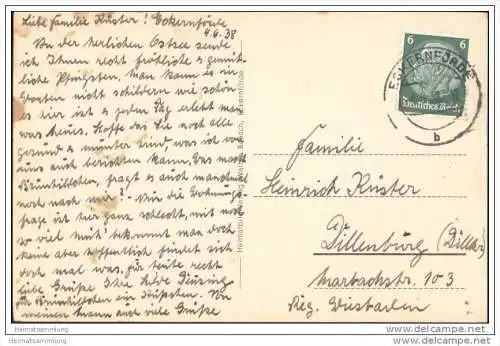 Liebe Familie Küster! Eckernförde
4.6.38
An der herlichen Ostsee sende
ich Ihnen recht fröhliche & gemüt-
liche Pfingsten. Man kann es in
Worten nicht schildern wie schön
es hier ist & jeden Tag erlebt man
was neues. Hoffe das Sie noch alle
gesund & munter sind was ich von
uns auch berichten kann. Das macht
fragt es auch manchmal
noch nach mir? Nur die Wohnungs-
frage ist hier ganz schlecht, mit noch
so viel Müh' bekommt man doch
keine aber hoffentlich findet sich
doch mal was. Für heute recht
liebe Grüße Ihre Hilde
für ein Küßchen. Von
meinem Mann auch viele Grüße
6 6
Deutsches Reich
ECKERNFÖRDE
b
Familie
Heinrich Küster
Dillenburg (Dillkr.)
Marbachstr. 103
Reg. Wiesbaden
Heimatsammlung
Heimatsammlung.de
http://www.delcampe.net